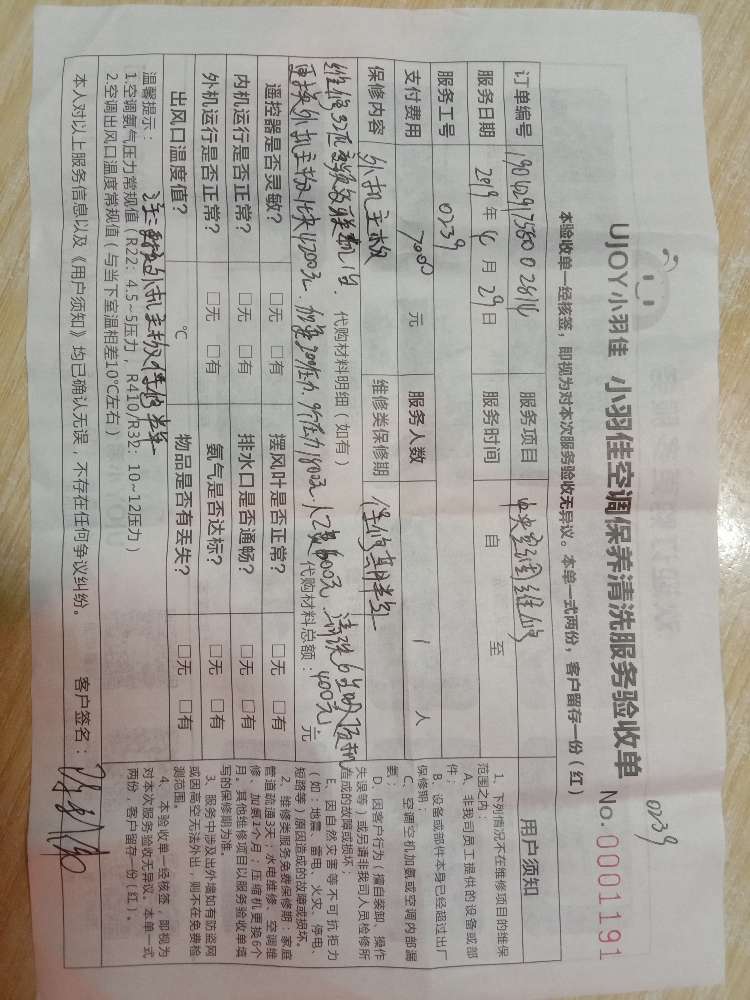 UJOY小羽佳 小羽佳空调保养清洗服务验收单
0239
No.0001191
本验收单一经核签，即视为对本次服务验收无异议。本单一式两份，客户留存一份（红）
订单编号
服务项目 中央空调维修
服务日期 2019年 月29日
服务时间 自 至
服务工号 0239
支付费用 7000 元
服务人数 1 人
保修内容 外机主板
维修类保修期 保修期半年
代购材料明细（如有）
更换外机主板1块4200元
代购材料总额： 400元 元
遥控器是否灵敏？ □无 □有
摆风叶是否正常？ □无 □有
内机运行是否正常？ □无 □有
排水口是否通畅？ □无 □有
外机运行是否正常？ □无 □有
氨气是否达标？ □无 □有
出风口温度值？ ℃
物品是否有丢失？ □无 □有
温馨提示：
外机主板保修半年
1.空调氨气压力常规值（R22：4.5~5压力，R410/R32：10~12压力）
2.空调出风口温度常规值（与当下室温相差10℃左右）
本人对以上服务信息以及《用户须知》均已确认无误，不存在任何争议纠纷。
客户签名：
用户须知
1、下列情况不在维修项目的维保
范围之内：
A、非我司员工提供的设备或部
件；
B、设备或部件本身已经超过出厂
保修期；
C、空调空机加氨或空调内部漏
氨；
D、因客户行为（擅自装卸、操作
失误等）或另请非我司人员检修所
造成的故障或损坏；
E、因自然灾害等不可抗拒力
（如：地震、雷电、火灾、停电、
短路等）原因造成的故障或损坏。
2、维修类服务免费保修期：家庭
管道疏通3天；水电维修、空调维
修、加氨1个月；压缩机更换6个
月。其他维修项目以服务验收单填
写的保修期为准。
3、服务中涉及出外墙如有防盗网
或因高空无法外出，则不在免费检
测范围。
4、本验收单一经核签，即视为
对本次服务验收无异议。本单一式
两份，客户留存一份（红）。